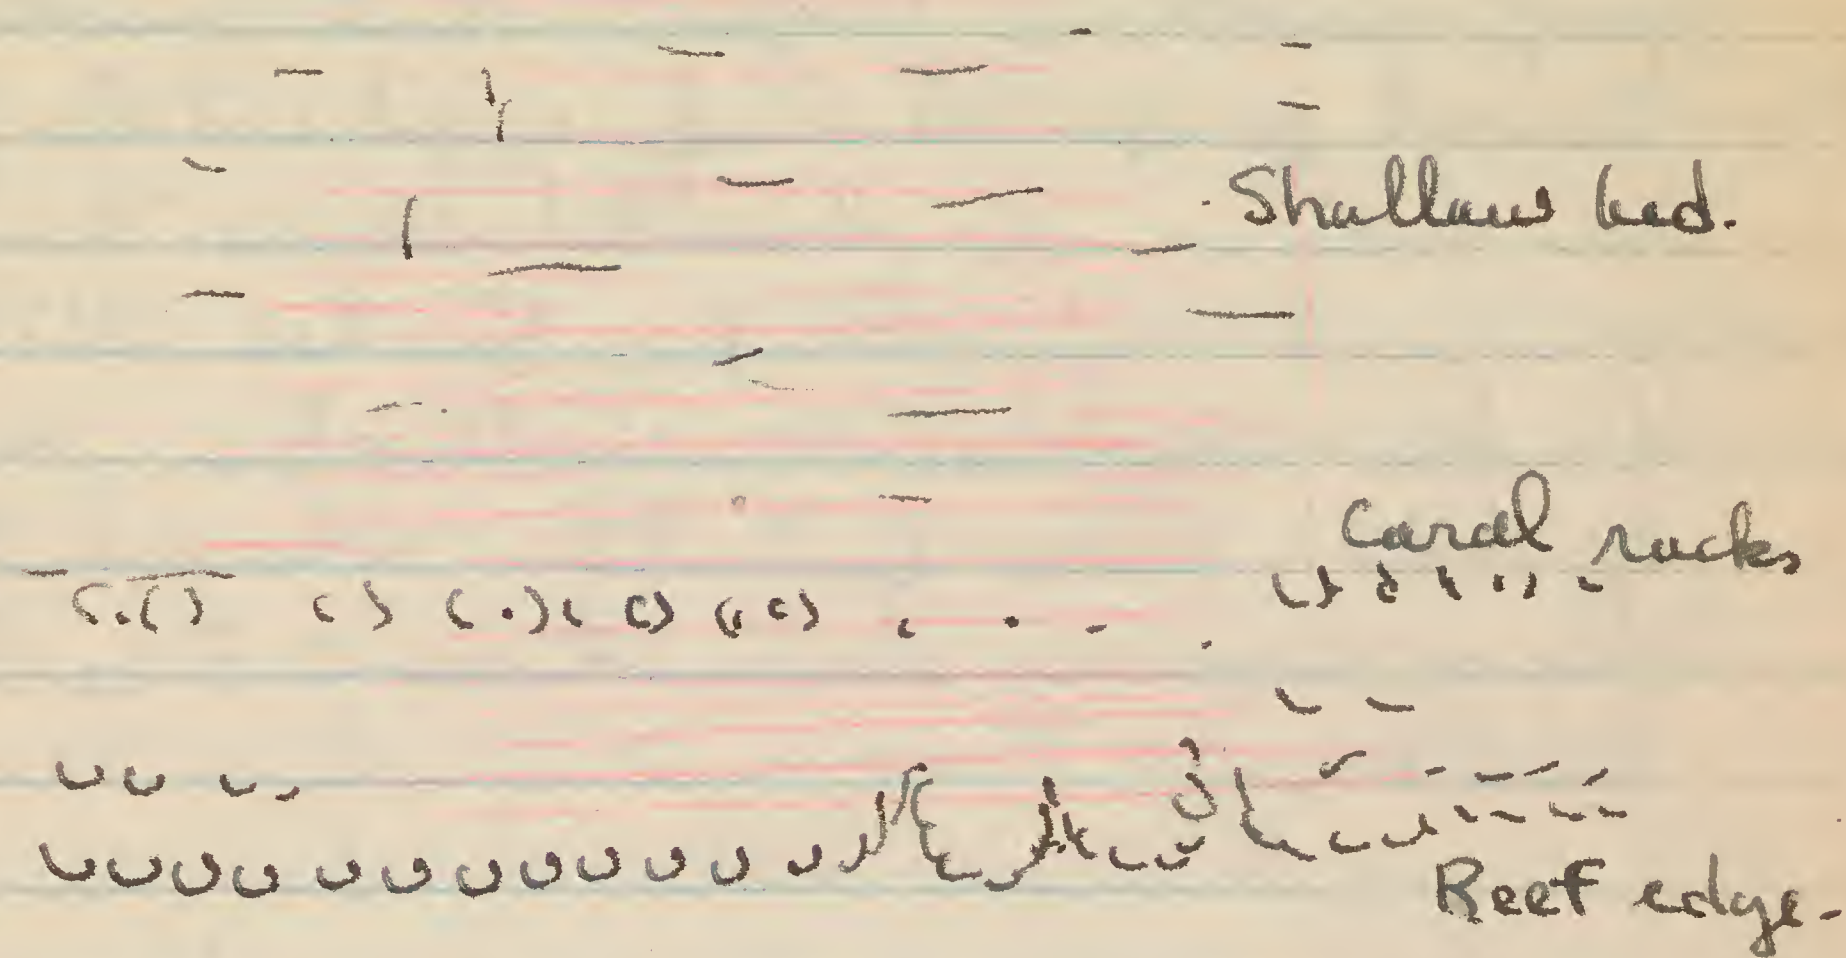 Shallow bed.
Coral rocks
Reef edge.